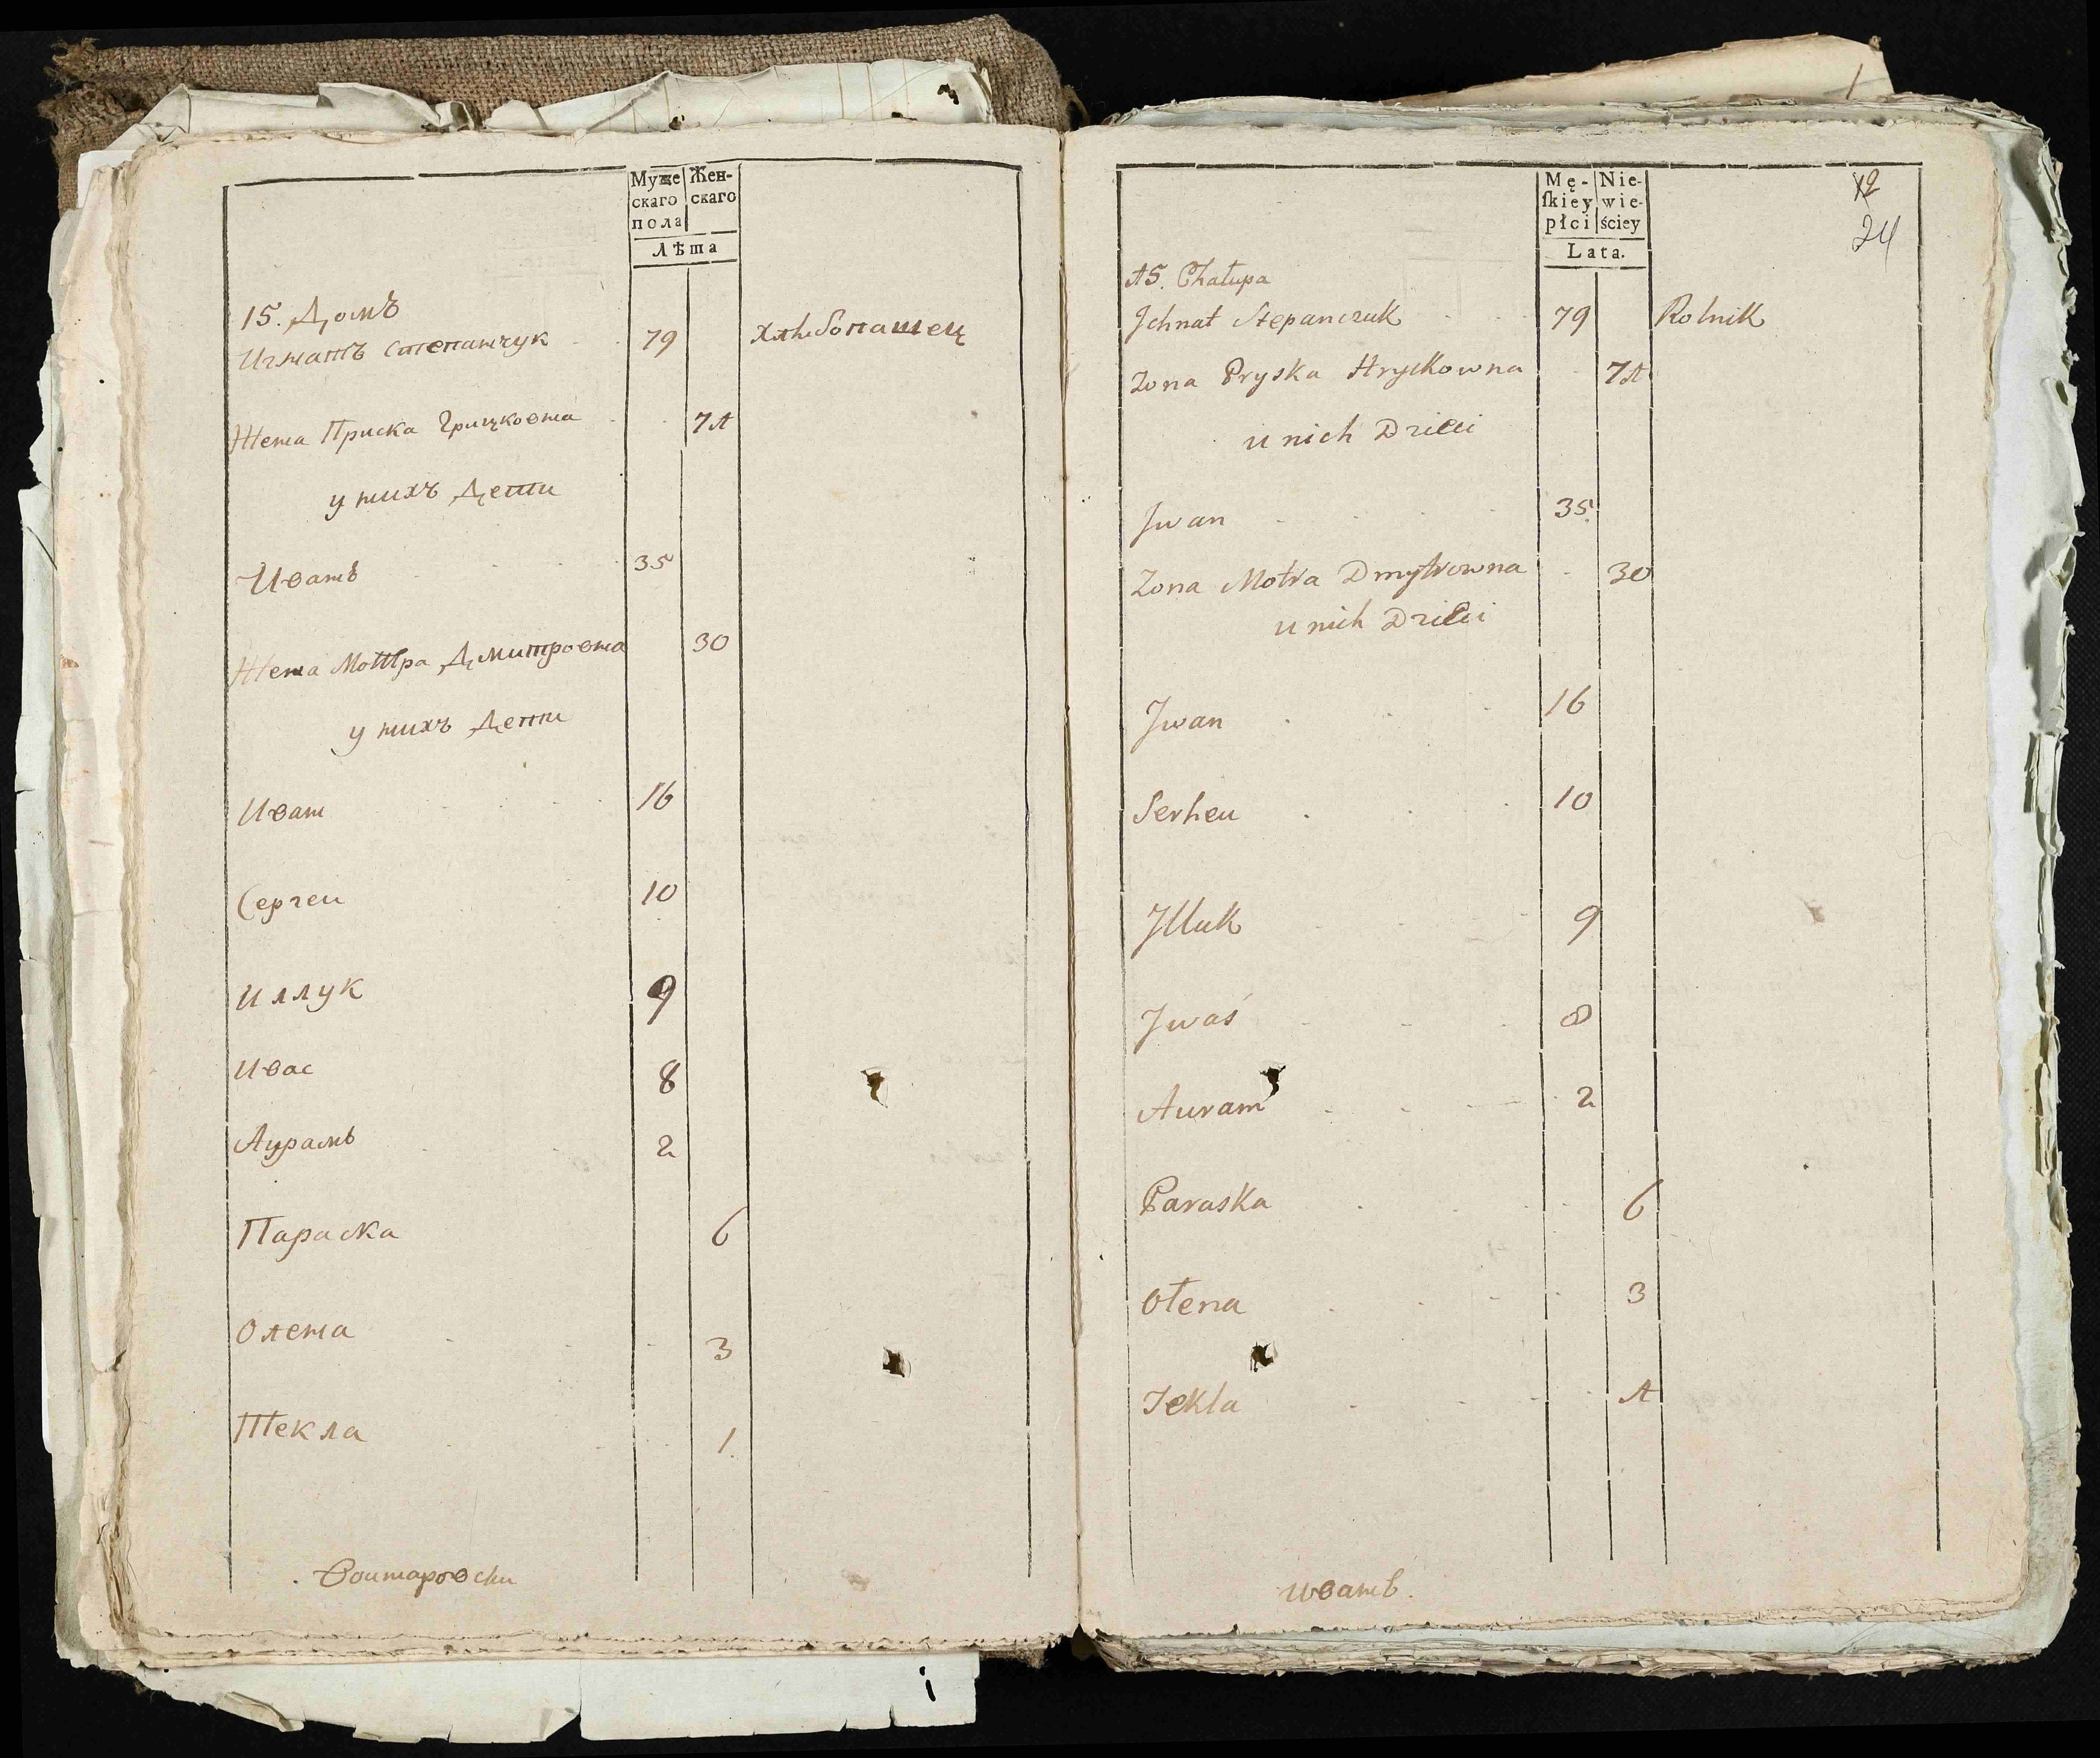 Муже
скаго
пола
Жен-
скаго
Лѣта
15. Домъ
Игнатъ Степанчук 79 Хлѣбопашец
Жена Приска Грицковна 71
у нихъ Дети
Иванъ 35
Жена Мотра Дмитровна 30
у нихъ Дети
Иван 16
Сергеи 10
Иллук 9
Ивас 8
Аурамъ 2
Параска 6
Олена 3
Текла 1
12
24
Mę-
ſkiey
płci
Nie-
wie-
ściey
Lata.
15. Chałupa
Jchnat Stepanczuk 79 Rolnik
Zona Pryska Hryckowna 71
u nich Dzieci
Jwan 35
Zona Motra Dmytrowna 30
u nich Dzieci
Jwan 16
Serheu 10
Jlluk 9
Jwaś 8
Auram 2
Paraska 6
Ołena 3
Tekla 1
иванъ.